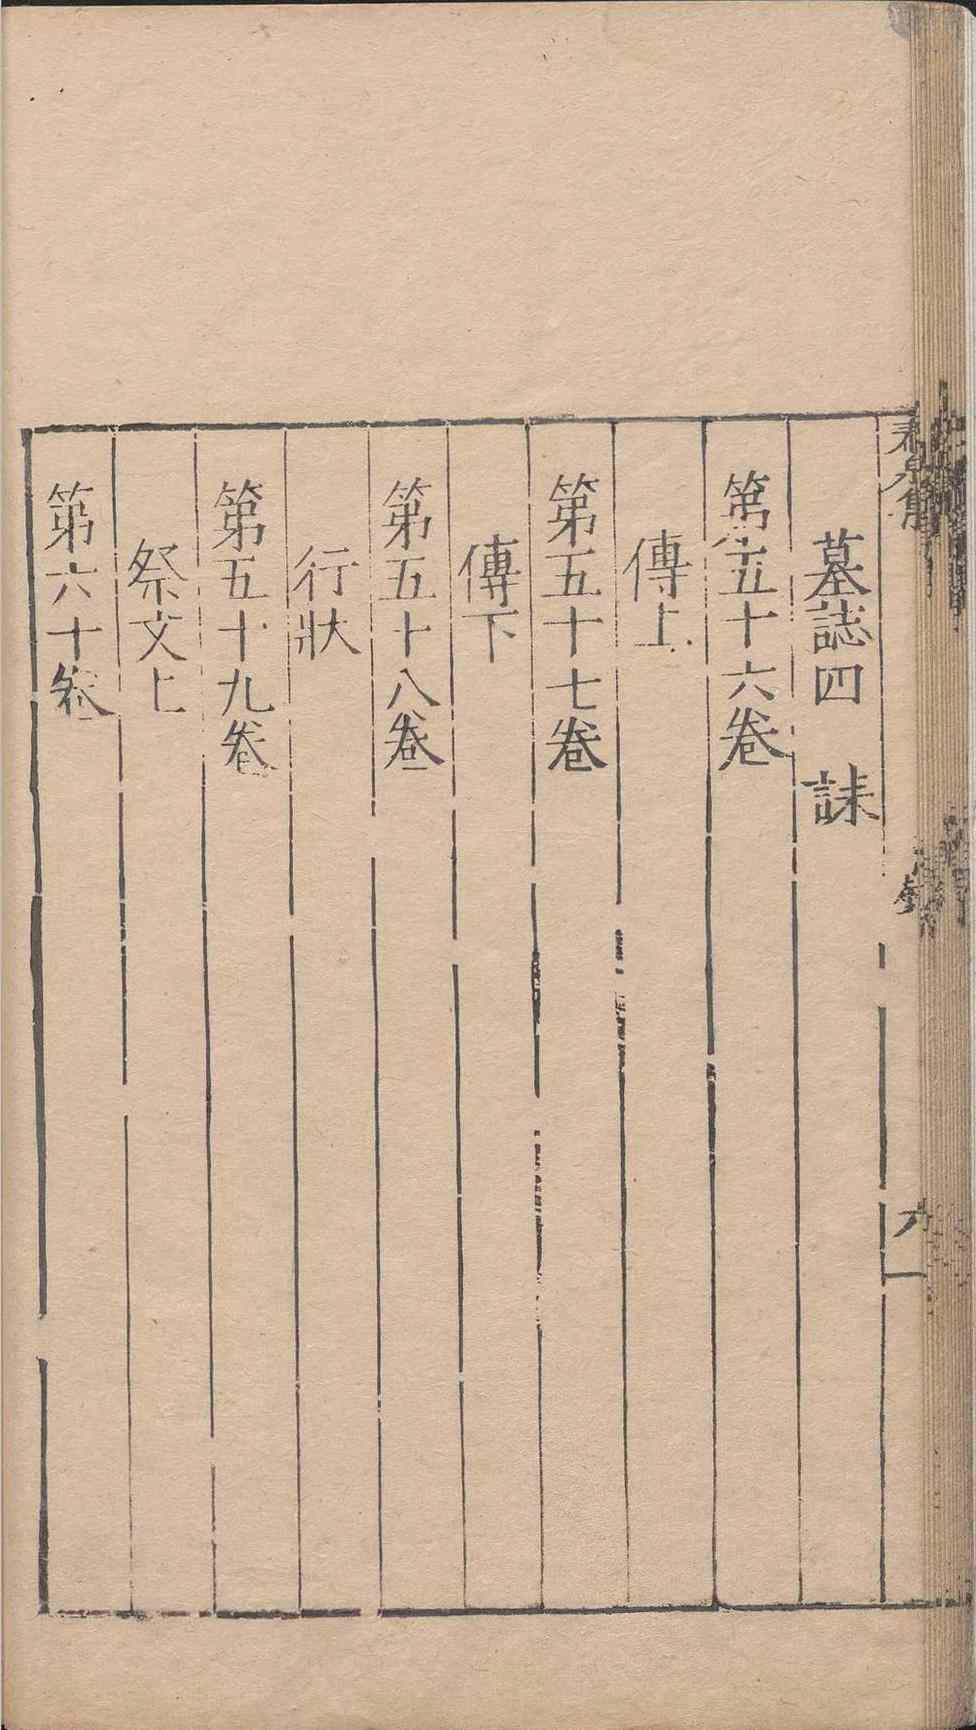 墓誌四　誄
第五十六卷
傳上
第五十七卷
傳下
第五十八卷
行狀
第五十九卷
祭文上
第六十卷